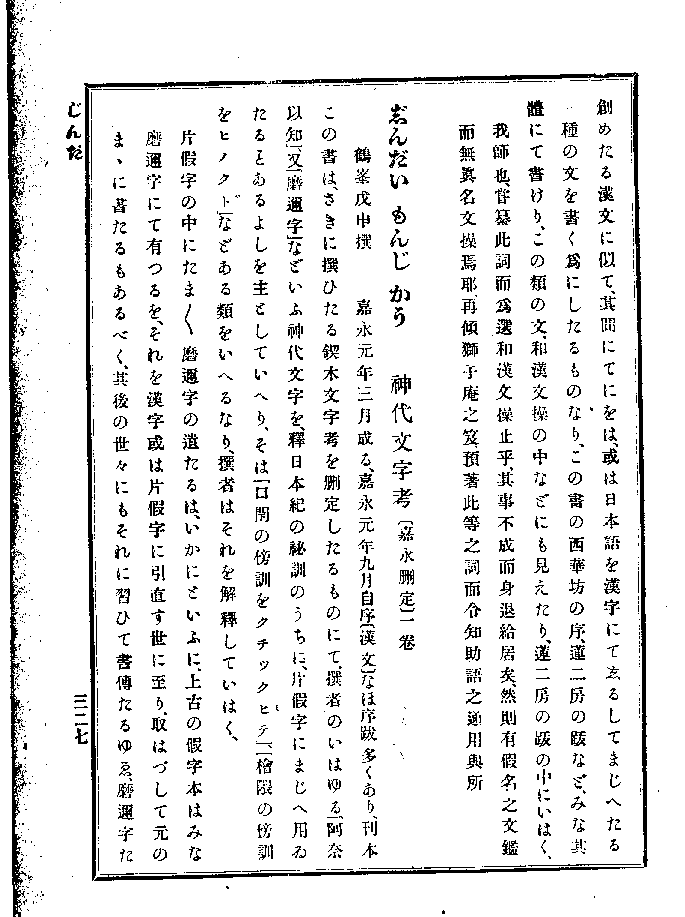 創めたる漢文に似て、其間にてにをは、或は日本語を漢字にて𛀁るしてまじへたる
一種の文を書く爲にしたるものなり、この書の西華坊の序、蓮二房の跋など、みな其
體にて書けり、この類の文和漢文操の中などにも見えたり、蓮二房の跋の中にいはく、
我師也、甞纂此詞而爲選和漢文操止乎、其事不成而身退給居矣、然則有假名之文鑑
而無眞名文操焉耶、再傾獅子庵之笈預著此等之詞而令知助語之通用與所
志んだい もんじ かう　神代文字考〔嘉永刪定〕二卷
鶴峯戊申撰　嘉永元年三月成る、嘉永元年九月自序〔漢文〕なほ序跋多くあり、刊本
この書は、さきに撰ひたる鍥木文字考を刪定したるものにて、撰者のいはゆる「阿奈
以知」又「磨邇字」などいふ神代文字を、釋日本紀の祕訓のうちに、片假字にまじへ用ゐ
たるとあるよしを主としていへり、そは「口開の傍訓をクチツクヒテ」「檜隈の傍訓
をヒノクト」などある類をいへるなり、撰者はそれを解釋していはく、
片假字の中にたま〱磨邇字の遺たるは、いかにといふに、上古の假字本はみな
磨邇字にて有つるを、それを漢字或は片假字に引直す世に至り、取はづして元の
まゝに書たるもあるべく、其後の世々にもそれに習ひて書傳たるゆゑ、磨邇字た
じんだ
三二七